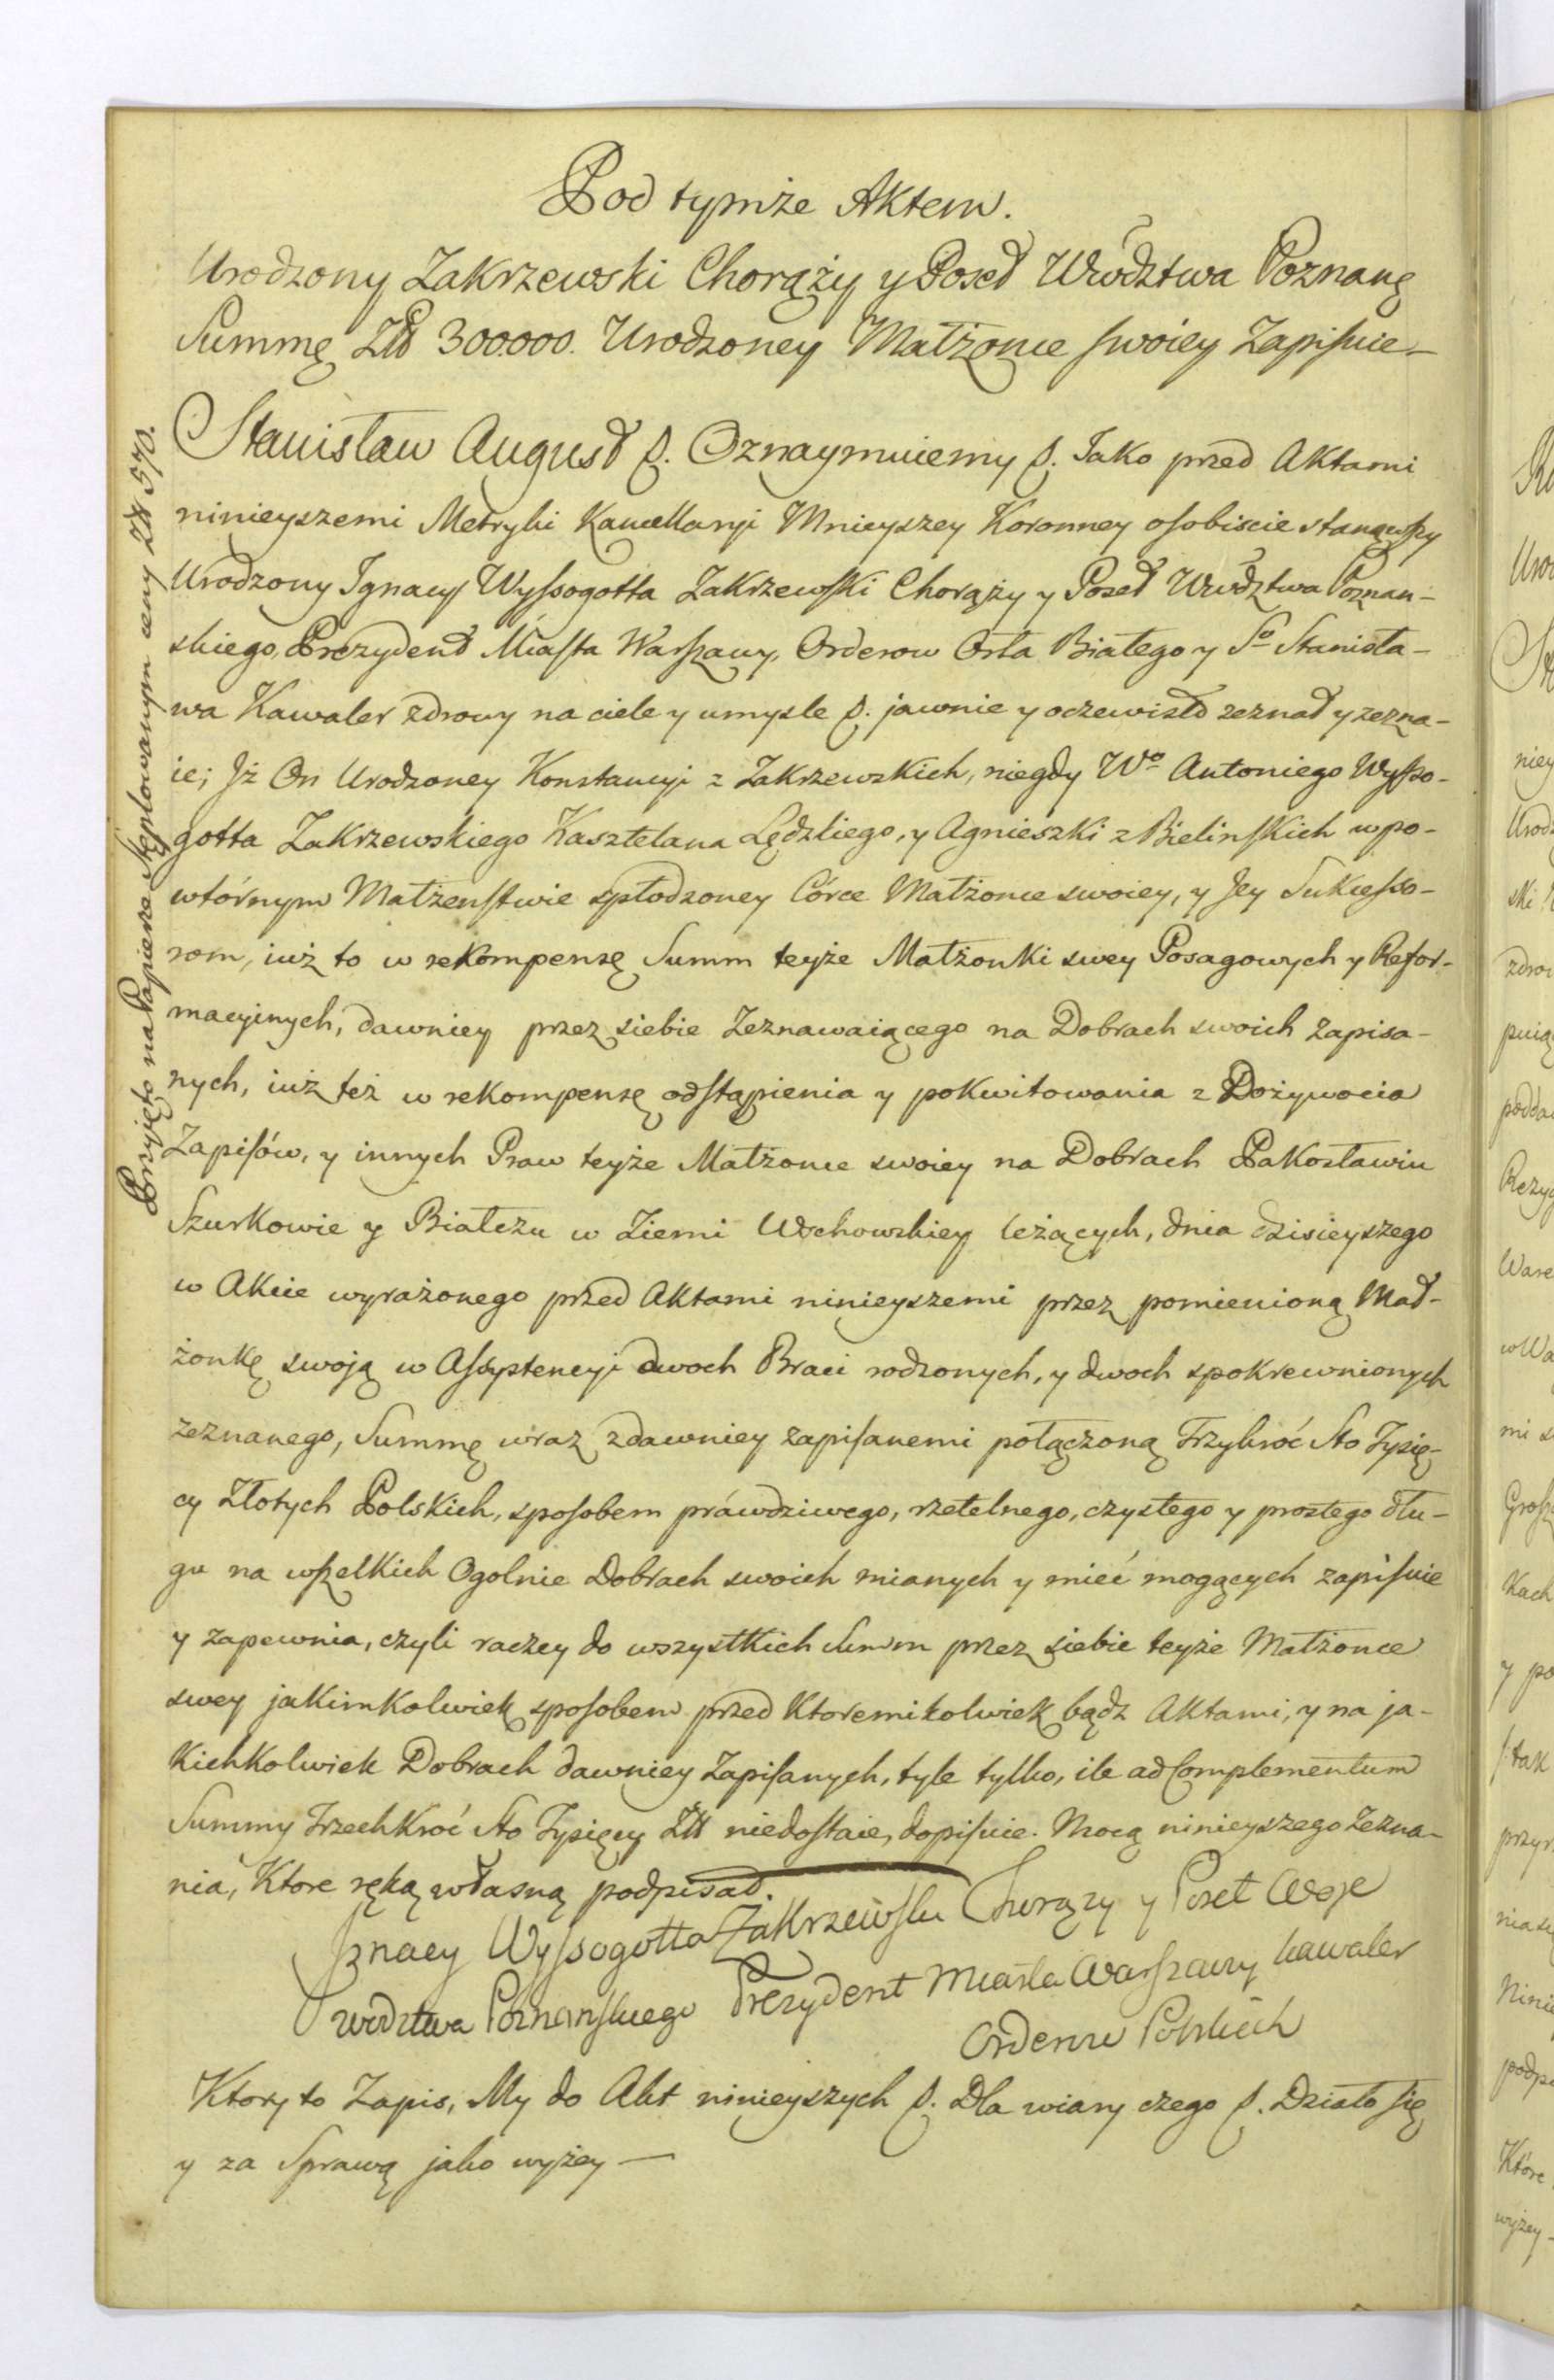 Pod tymże Aktem.
Urodzony Zakrzewski Chorąży y Poseł Wództwa Poznang
Summę Złł 300000. Urodzoney Małżonce swoiey Zapisuie_
Stanisław August p. Oznaymuiemy p. Jako przed Aktami
ninieyszemi Metryki Kancellaryi Mnieyszey Koronney osobiscie stanąwszy
Urodzony Ignacy Wyssogotta Zakrzewski Chorąży y Poseł Wództwa Poznan-
skiego, Prezydent Miasta Warszawy, Orderow Orła Białego y Sº Stanisła-
wa Kawaler zdrowy na ciele y umysle p. jawnie y oczewisto zeznał y zezna-
ie; Jż On Urodzoney Konstancyi z Zakrzewskich, niegdy Wº Antoniego Wysso-
gotta Zakrzewskiego Kasztelana Lędzkiego, y Agnieszki z Bielinskich w po-
wtórnym Małżenstwie spłodzoney Córce Małżonce swoiey, y Jey Sukcesso-
rom, iuż to w rekompensę Summ teyże Małżonki swey Posagowych y Refor-
macyinych, dawniey przez siebie Zeznawaiącego na Dobrach swoich zapisa-
nych, iuż też w rekompensę odstąpienia y pokwitowania z Dożywocia
Zapisów, y innych Praw teyże Małżonce swoiey na Dobrach Pakosławiu
Szurkowie y Białczu w Ziemi Wschowskiey leżących, dnia dzisieyszego
w Akcie wyrażonego przed Aktami ninieyszemi przez pomienioną Mał-
żonkę swoją w Assystencyi dwoch Braci rodzonych, y dwoch spokrewnionych
zeznanego, Summę wraz z dawniey zapisanemi połączoną Trzykroć Sto Tysię-
cy Złotych Polskich, sposobem prawdziwego, rzetelnego, czystego y prostego dłu-
gu na wszelkich Ogolnie Dobrach swoich mianych y mieć mogących zapisuie
y zapewnia, czyli raczey do wszystkich Summ przez siebie teyże Małżonce
swey jakimkolwiek sposobem przed Ktoremikolwiek bądz Aktami, y na ja-
kichkolwiek Dobrach dawniey Zapisanych, tyle tylko, ile ad Complementum
Summy Trzechkroć Sto Tysięcy Złł niedostaie, dopisuie. Mocą ninieyszego Zezna-
nia, Ktore ręką własną podpisał.
Ignacy Wyssogotta Zakrzewski Chorązy y Poseł Woje
wodztwa Poznanskiego Prezydent Miasta Warszawy kawaler
Orderow Polskich
Ktory to Zapis, My do Akt ninieyszych p. Dla wiary czego p. Działo się
y za Sprawą jako wyżey —
Przyięto na Papierze stęplowanym ceny Złł 570.